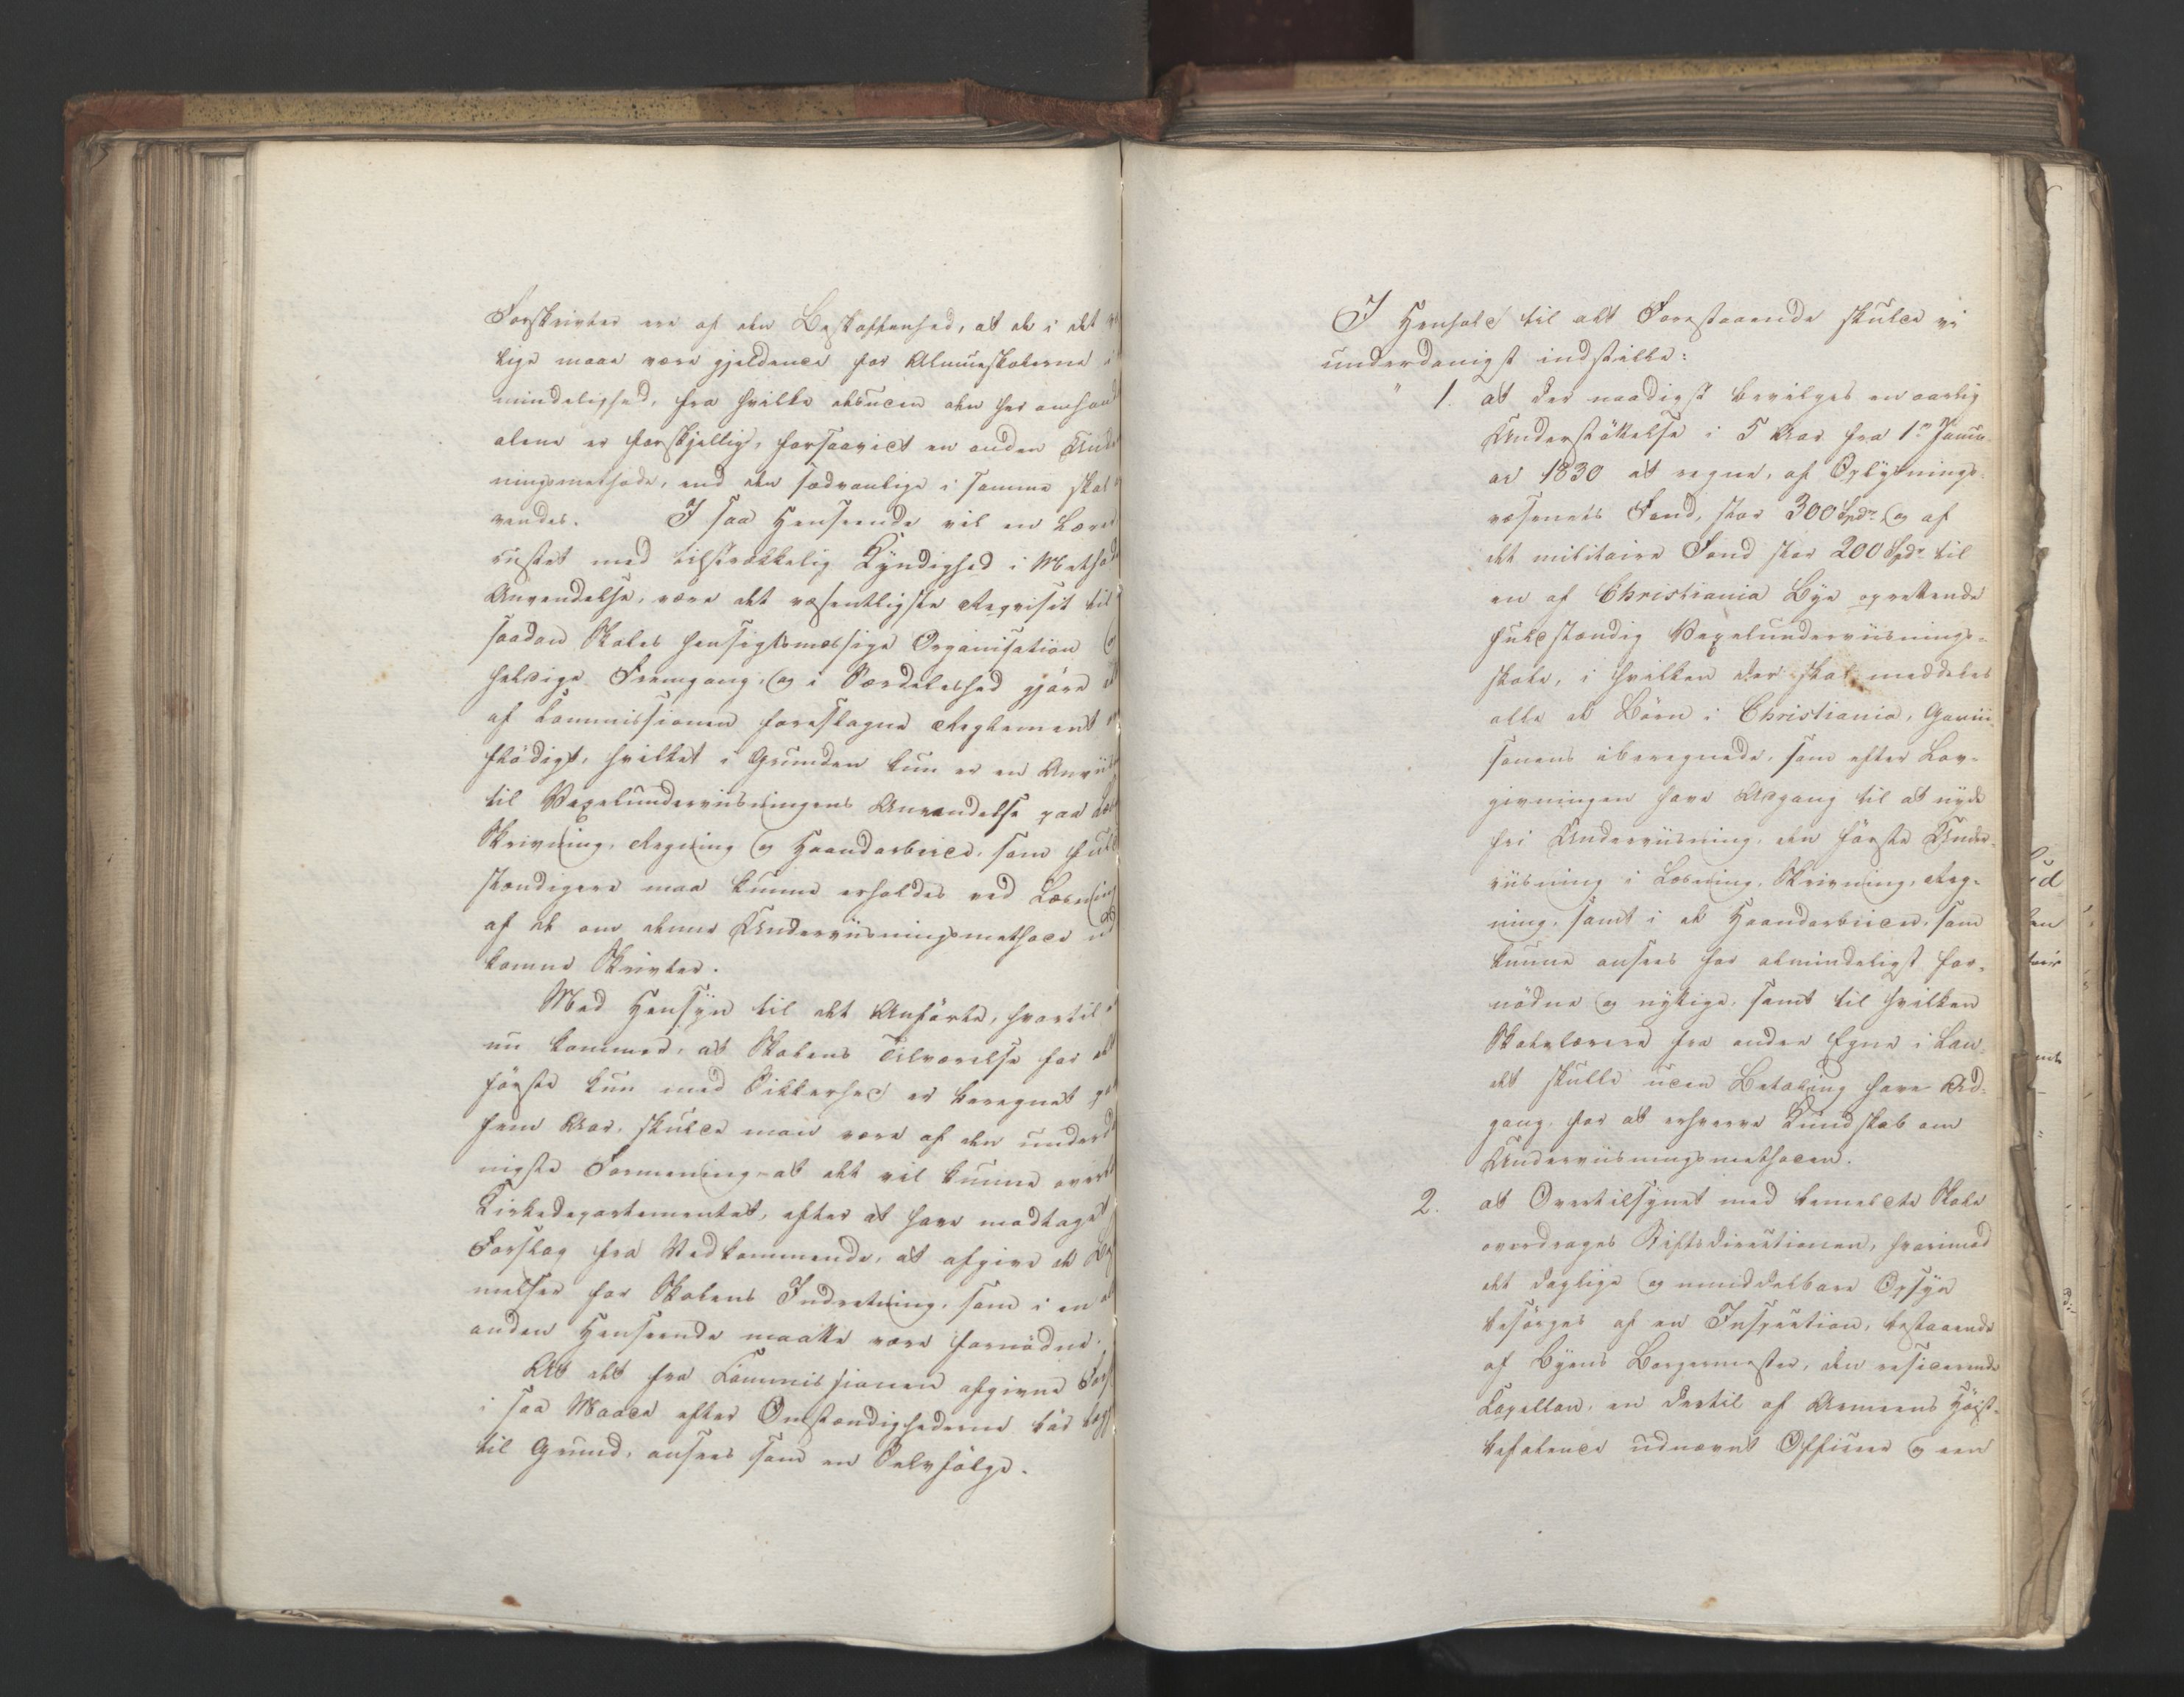 Forskrivter ere af den Beskaffenhed, at de i det
lige maae være gjeldende for Almueskolerne i
mindelighed, fra hvilke desuden den her omhand
alene er forskjellig, forsaavidt en anden Unde
ningsmethode, end den sædvanlige i samme skal
vendes. I saa Henseende vil en Lærer
rustet med tilstrækkelig Kyndighed i Methode
Anvendelse, være det væsentligste Reqvisit til
saadan Skoles hensigtsmæssige Organisation og
heldige Fremgang, og i Særdeleshed gjøre et
af Commissionen foreslagne Reglement
flødigt, hvilket i Grunden kun er en Anviis
til Vexelunderviisningens Anvendelse paa Læs
Skrivning, Regning og Haandarbeide, som fuld
stændigere maa kunne erholdes ved Læsning
af de om denne Underviisningsmethode ud
komne Skrivter.
Med Hensyn til det Anførte, hvortil
nu kommer, at Skolens Tilværelse for det
første kun med Sikkerhed er beregnet paa
fem Aar, skulde man være af den underda
nigste Formening at det vil kunne overl
Kirkedepartementet, efter at have modtaget
Forslag fra Vedkommende, at afgive de Be
melser for Skolens Indretning, som i en
anden Henseende maatte være fornødne.
At det fra Commissionen afgivne Forsl
i saa Maade efter Omstændighederne bør lægg
til Grund, ansees som en Selvfølge.
I Henhold til alt Forestaaende skulde vi
underdanigst indstille:
" 1. at der naadigst bevilges en aarlig
Understøttelse i 5 Aar fra 1ste Janu-
ar 1830 at regne, af Oplysnings-
væsenets Fond, stor 300 Spdr og af
det militaire Fond stor 200 Spdr til
en af Christiania Bye oprettende
fuldstændig Vexelunderviisnings-
skole, i hvilken der skal meddeles
alle de Børn i Christiania, Garni-
sonens iberegnede, som efter Lov-
givningen have Adgang til at nyde
fri Underviisning, den første Under-
viisning i Læsning, Skrivning, Reg-
ning, samt i de Haandarbeider, som
kunne ansees for almindeligst for-
nødne og nyttige, samt til hvilken
Skolelærere fra andre Egne i Lan-
det skulle uden Betaling have Ad-
gang for at erhverve Kundskab om
Underviisningsmethoden.
2. at Overtilsynet med bemeldte Skole
overdrages Stiftsdirectionen, hvorimod
det daglige og umiddelbare Opsyn
besørges af en Inspection, bestaaende
af Byens Borgermester, den residerende
Capellan, en dertil af Armeens Høist-
befalende udnævnt Officer og een